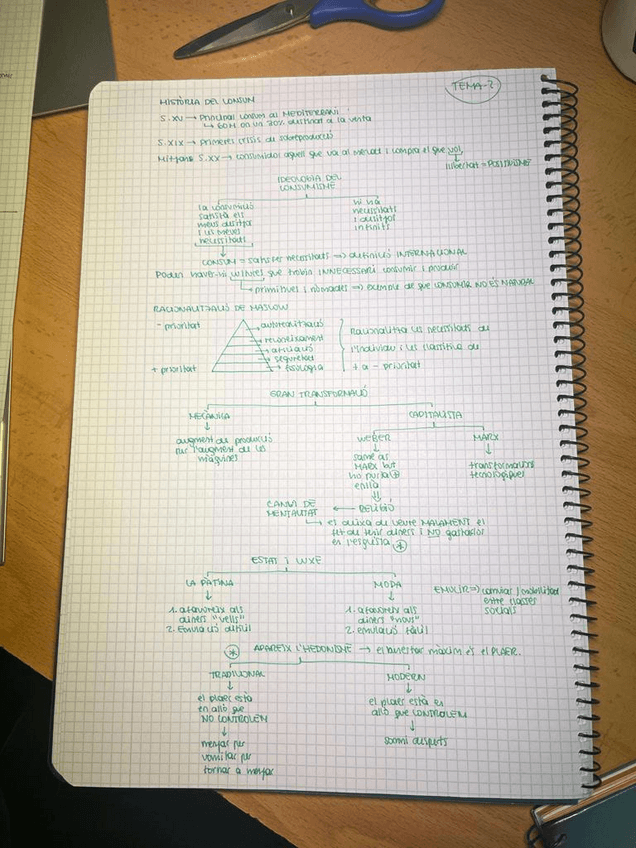 TEMA-2
HISTÒRIA DEL CONSUM
S. XV → Principal consum al MEDITERRANI
↳ 60M on un 20% destinat a la venta
S. XIX → primeres crisis de sobreproducció
Mitjans S. XX → consumidor aquell que va al mercat i compra el que vol
llibertat = POSITIVISME
IDEOLOGIA DEL
CONSUMISME
la consumició
satisfà els
meus desitjos
i les meves
necessitats
hi ha
necessitats
i desitjos
infinits
CONSUM = satisfer necessitats => definició INTERNACIONAL
Poden haver-hi que trobin INNECESSARI consumir i produir
primitives i nòmades => exemple de que CONSUMIR NO ÉS NATURAL
RACIONALITZACIÓ DE MASLOW
- prioritat
→ autorealització
→ reconeixement
→ afiliació
→ seguretat
→ fisiologia
+ prioritat
Racionalitza les necessitats de
l'individu i les classifica de
+ a - prioritat
GRAN TRANSFORMACIÓ
MECÀNICA
augment de producció
per l'augment de les
màquines
CAPITALISTA
WEBER
same as
MARX but
ho porta
enllà
RELIGIÓ
MARX
transformacions
tecnològiques
CANVI DE
MENTALITAT
es deixa de veure MALAMENT el
fet de tenir diners i NO gastar-los
en l'església *
ESTAT I LUXE
LA PÀTINA
1. afavoreix als
diners "vells"
2. Emulació difícil
MODA
1. afavoreix als
diners "nous"
2. emulació fàcil
EMULCIR => canviar / mobilitat
entre classes
socials
* APAREIX L'HEDONISME → el benestar màxim és el PLAER.
TRADICIONAL
el plaer està
en allò que
NO CONTROLEM
menjar per
vomitar per
tornar a menjar
MODERN
el plaer està en
allò que CONTROLEM
somni desperts